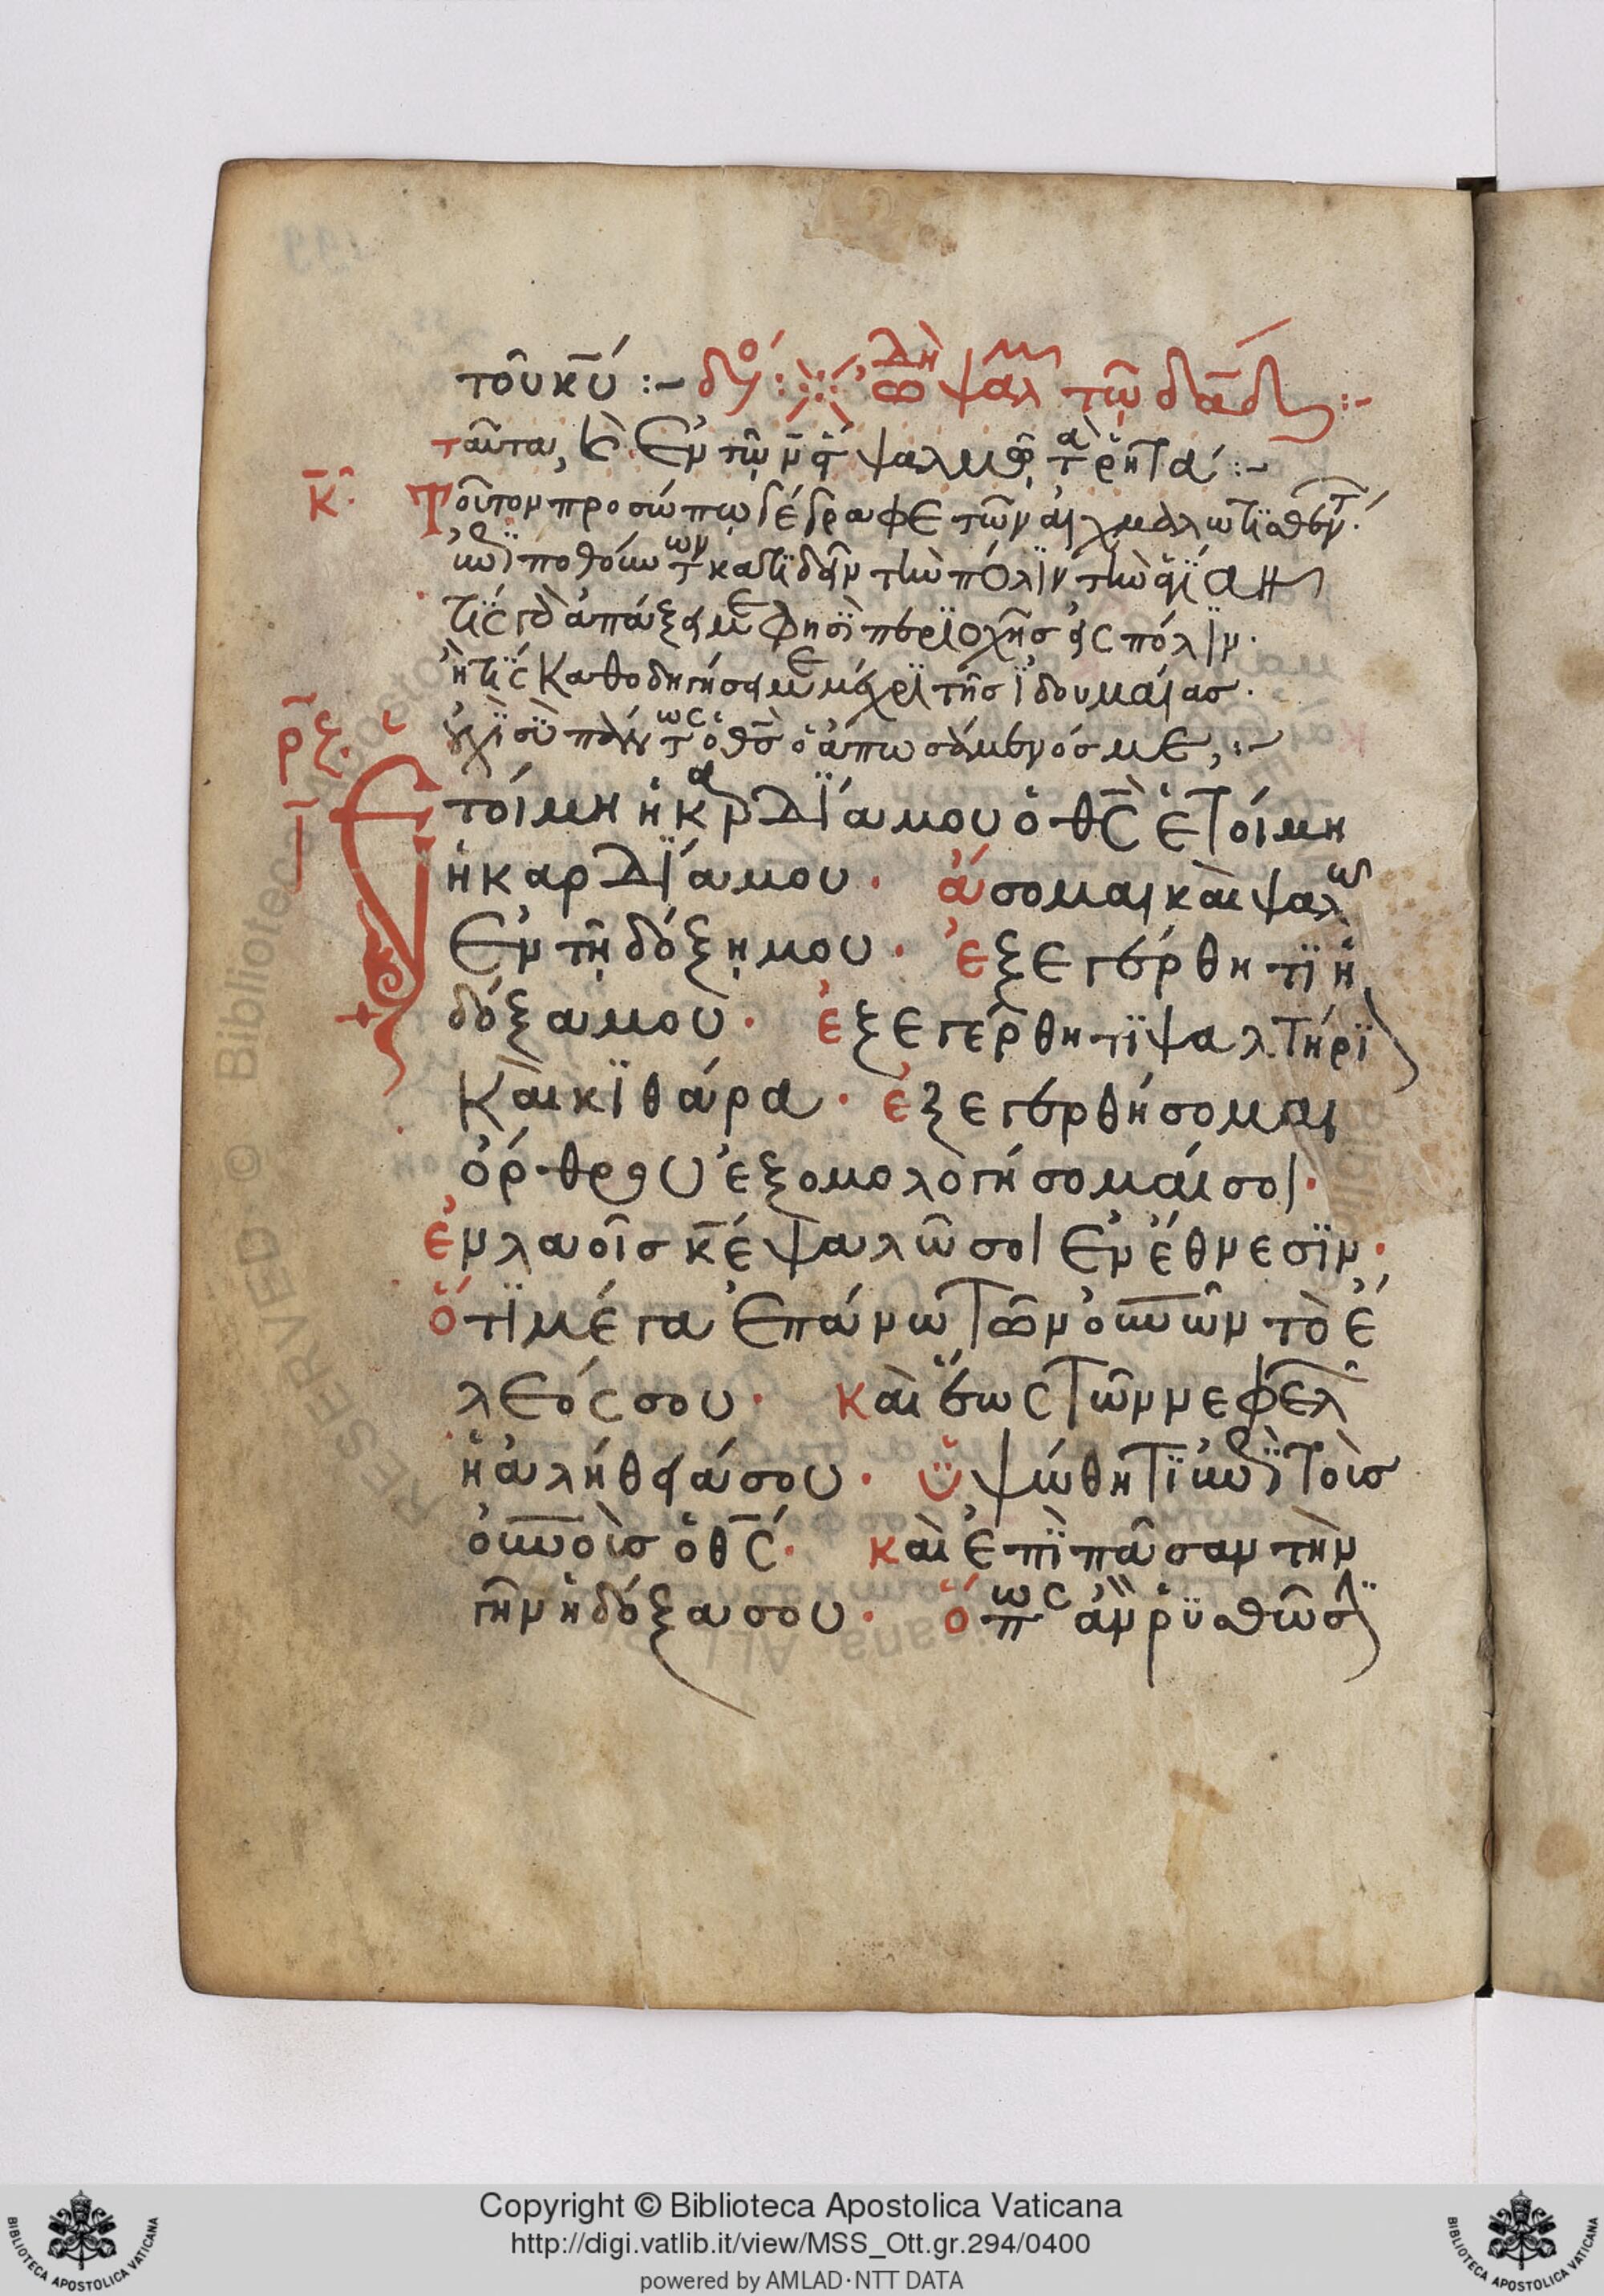 τοῦ κ̅υ̅ :- δο´ : ᾠδὴ ψαλμ τῶ δα̅δ :-
ταῦτα, κ(αὶ) ἐν τῶ ν̅ϛ ψαλμῶ τὰ ῥητά :-
κ̅. Τοῦτον προσώπω γέγραφε τῶν αἰχμαλωτισθέντ.
καὶ ποθούντων κατιδεῖν τὴν πόλιν τὴν ἁγίαν
τίς γὰρ ἀπάξει με φησὶ περιοχῆσ εἰς πόλιν.
ἢ τίς καθοδηγήσει με μέχρι τῆσ ἰδουμαίασ.
οὐχὶ σὺ πάντως ὁ θ̅σ̅ ὁ ἀπωσάμενόσ με, :-
ρ̅ζ.
Ἑτοίμη ἡ καρδία μου ὁ θ̅ς̅ ἑτοίμη
ἡ καρδία μου· ἄσομαι καὶ ψαλῶ
ἐν τῆ δόξη μου· ἐξεγέρθητι ἡ
δόξα μου· ἐξεγέρθητι ψαλτήρι
καὶ κιθάρα· ἐξεγερθήσομαι
ὄρθρου ἐξομολογήσομαί σοι·
ἐν λαοῖσ κ̅έ̅ ψαλῶ σοι ἐν ἔθνεσιν·
ὅτι μέγα ἐπάνω τῶν ο̅υ̅ν̅ῶν τὸ ἔ
λεός σου· καὶ ἕως τῶν νεφελ
ἡ ἀλήθειά σου· ὑψώθητι ἐπὶ τοὺσ
ο̅υ̅ν̅οὺσ ὁ θ̅ς̅· καὶ ἐπὶ πᾶσαν τὴν
γῆν ἡ δόξα σου· ὅπως ἂν ῥυσθῶσι
Copyright © Biblioteca Apostolica Vaticana
http://digi.vatlib.it/view/MSS_Ott.gr.294/0400
powered by AMLAD·NTT DATA
BIBLIOTECA APOSTOLICA VATICANA
BIBLIOTECA APOSTOLICA VATICANA